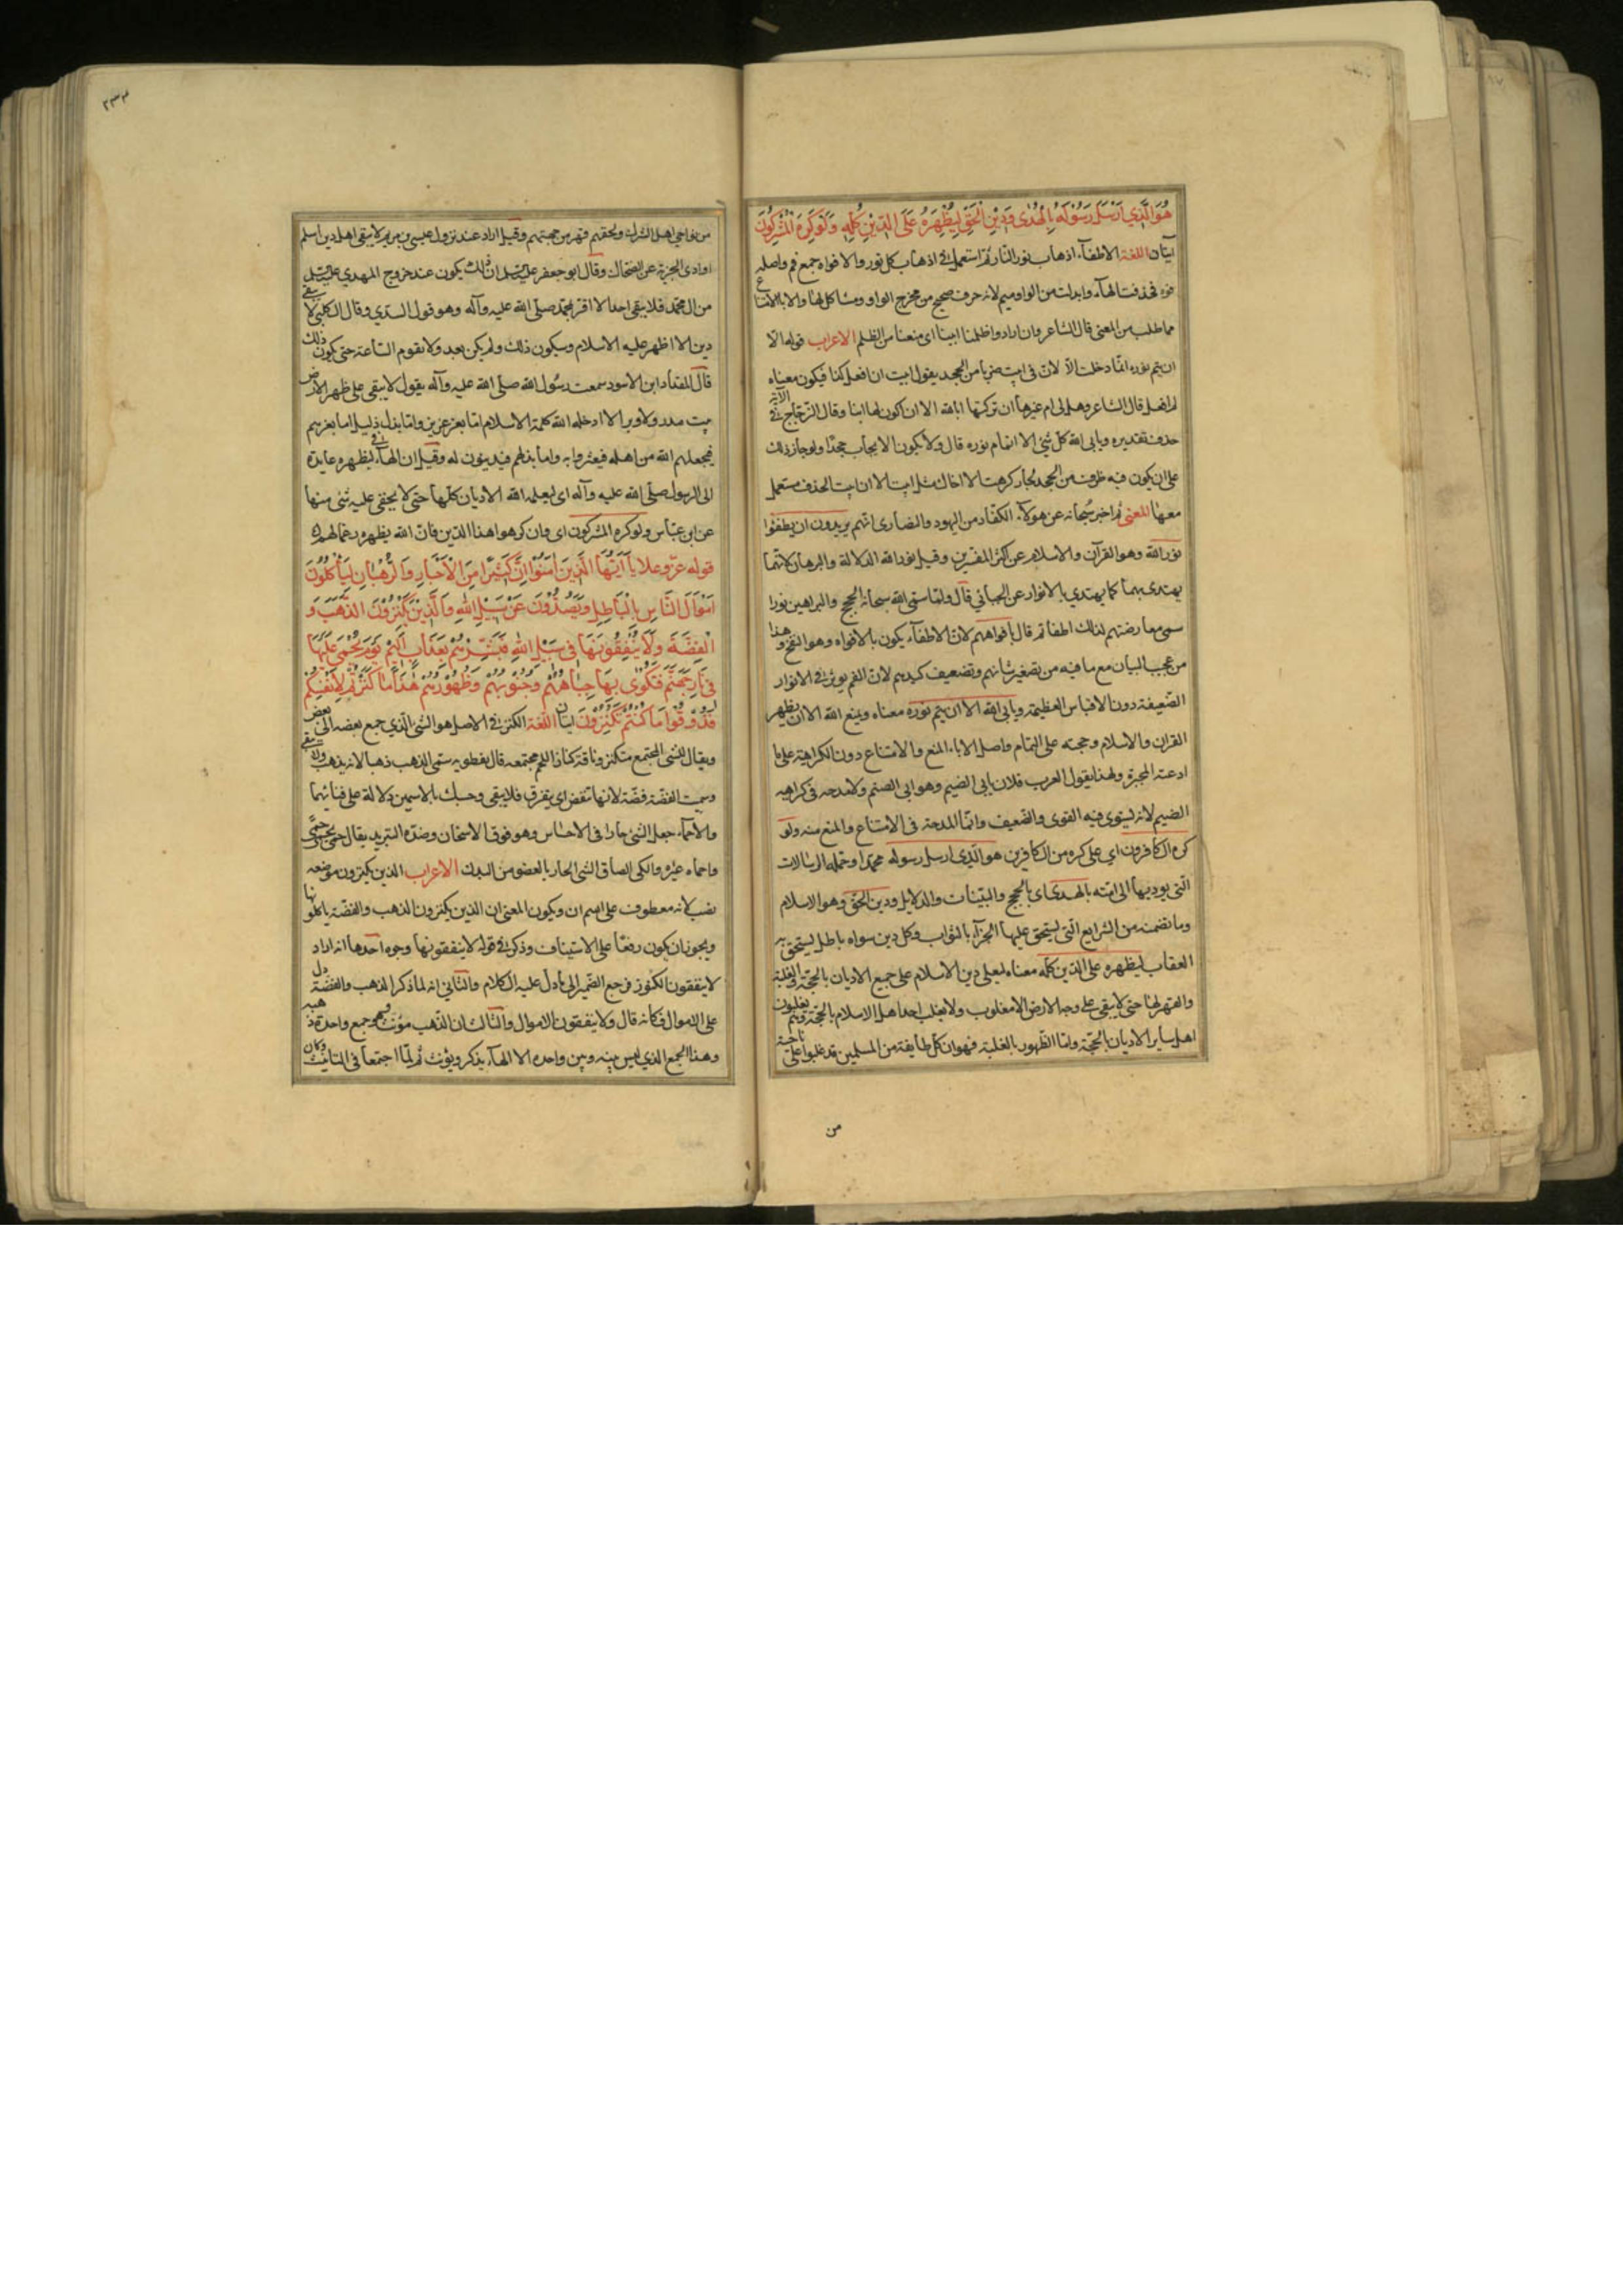 هُوَ الَّذِي اَرْسَلَ رَسُوْلَهُ بِالْهُدٰى وَدِيْنِ الْحَقِّ لِيُظْهِرَهُ عَلَى الدِّيْنِ كُلِّهِ وَلَوْ كَرِهَ الْمُشْرِكُوْنَ
آيتان اللغة الاطفآء اذهاب نور النار ثم استعمل في اذهاب كل نور والافواه جمع فم واصله
فوه فحذفت الهآء وابدلت من الواو ميم لانه حرف صحيح من مخرج الواو ومشاكل لها والاباء الامتناع
مما طلب من المعنى قال الشاعر وان ارادوا ظلمنا ابينا اى منعنا من الظلم الاعراب قوله الا
ان يتم نوره انما دخلت الا لان في ابيت ضربا من الجحد يقول ابيت ان افعل كذا فيكون معناه
لم افعل قال الشاعر وهل لى ام غيرها ان تركتها ابا الله الا ان اكون لها ابنا وقال الزجاج في الآية
حذف تقديره ويابى الله كل شئ الا اتمام نوره قال ولا يكون الايجاب جحدا ولو جاز ذلك
على ان يكون فيه طرف من الجحد لجاز كرهت الا اخاك مثل ابيت الا ان ابيت الحذف مستعمل
معها المعنى ثم اخبر سبحانه عن هولآء الكفار من اليهود والنصارى انهم يريدون ان يطفئوا
نور الله وهو القرآن والاسلام عن اكثر المفسرين وقيل نور الله الدلالة والبرهان لانهما
يهتدى بهما كما يهتدي بالانوار عن الجبائي قال ولما سمى الله سبحانه الحجج والبراهين نورا
سمى معارضتهم لذلك اطفا ثم قال بافواههم لان الاطفآء يكون بالافواه وهو النفخ وهذا
من عجيب البيان مع ما فيه من تصغير شانهم وتضعيف كيدهم لان الفم يوثر في الانوار
الضعيفة دون الاقباس العظيمة ويابى الله الا ان يتم نوره معناه ويمنع الله الا ان يظهر
القران والاسلام وحجته على التمام واصل الاباء المنع والامتناع دون الكراهية على ما
ادعته المجبرة ولهذا يقول العرب فلان يابى الضيم وهو ابى الضيم ولا مدحه فى كراهيه
الضيم لانه ليستوى فيه القوى والضعيف وانما المدحة فى الامتناع والمنع منه ولو
كره الكافرون اي على كره من الكافرين هو الذي ارسل رسوله محمدا وحمله الرسالات
التى يوديها الى امته بالهدى اى بالحجج والبينات والدلايل ودين الحق وهو الاسلام
وما تضمنه من الشرايع التى يستحق عليها الجزآء بالثواب وكل دين سواه باطل يستحق به
العقاب ليظهره على الدين كله معناه ليعلى دين الاسلام على جميع الاديان بالحجة والغلبة
والقهر لها حتى لا يبقى على وجه الارض الا مغلوب ولا يغلب احد اهل الاسلام بالحجة وهم يغلبون
اهل ساير الاديان بالحجة واما الظهور بالغلبة فهو ان كل طايفة من المسلمين قد غلبوا على ناحية
من
٢٣٣
من نواحي اهل الشرك ولحقهم قهر من جهتهم وقيل اراد عند نزول عيسى بن مريم لا يبقى اهل دين الا اسلم
او ادى الجزية عن الضحاك وقال ابو جعفر ان ذلك يكون عند خروج المهدي
من ال محمد فلا يبقى احد الا اقر بمحمد صلى الله عليه وآله وهو قول السدي وقال الكلبي لا يبقى
دين الا اظهر عليه الاسلام وسيكون ذلك ولم يكن بعد ولا تقوم الساعة حتى يكون ذلك
قال المقداد ابن الاسود سمعت رسول الله صلى الله عليه وآله يقول لا يبقى على ظهر الارض
بيت مدر ولا وبر الا ادخله الله كلمة الاسلام اما بعز عزيز واما بذل ذليل اما بعزهم
فيجعلهم الله من اهله فيعزوا به واما بذلهم فيدينون له وقيل ان الهآء في ليظهره عايدة
الى الرسول صلى الله عليه وآله اى ليعلمه الله الاديان كلها حتى لا يخفى عليه شئ منها
عن ابن عباس ولو كره المشركون اى وان كرهوا هذا الدين فان الله يظهره رغما لهم
قوله عز وعلا يآ اَيُّهَا الَّذِينَ اٰمَنُوْا اِنَّ كَثِيْرًا مِنَ الْاَحْبَارِ وَالرُّهْبَانِ لَيَأْكُلُوْنَ
اَمْوَالَ النَّاسِ بِالْبَاطِلِ وَيَصُدُّوْنَ عَنْ سَبِيْلِ اللهِ وَالَّذِيْنَ يَكْنِزُوْنَ الذَّهَبَ وَ
الْفِضَّةَ وَلَا يُنْفِقُوْنَهَا فِى سَبِيْلِ اللهِ فَبَشِّرْهُمْ بِعَذَابٍ اَلِيْمٍ يَوْمَ يُحْمٰى عَلَيْهَا
فِى نَارِ جَهَنَّمَ فَتُكْوٰى بِهَا جِبَاهُهُمْ وَجُنُوْبُهُمْ وَظُهُوْرُهُمْ هٰذَا مَا كَنَزْتُمْ لِاَنْفُسِكُمْ
فَذُوْقُوْا مَا كُنْتُمْ تَكْنِزُوْنَ آيتان اللغة الكنز في الاصل هو الشئ الذي جمع بعضه الى بعض
ويقال للشئ المجتمع مكتنز وناقة كناز اللحم مجتمعه قال نفطويه سمى الذهب ذهبا لانه يذهب ولا يبقى
وسميت الفضة فضة لانها تنفض اى يتفرق فلا يبقى وحسبك بالاسمين دلالة على فنائهما
والاحماء جعل الشئ حارا فى الاحساس وهو فوق الاسخان وضده التبريد يقال حمى يحمى حمى
واحماه غيره والكى الصاق الشئ الحار بالعضو من البدن الاعراب الذين يكنزون موضعه
نصب لانه معطوف على اسم ان ويكون المعنى ان الذين يكنزون الذهب والفضة ياكلونها
ويجوز ان يكون رفعا على الاستيناف وذكر في قوله لا ينفقونها وجوه احدها انه اراد
لا ينفقون الكنوز فرجع الضمير الى ما دل عليه الكلام والثاني انه لما ذكر الذهب والفضة دل
على الاموال فكانه قال ولا ينفقون الاموال والثالث ان الذهب مونث وهو جمع واحده ذهبة
وهذا الجمع الذي ليس بينه وبين واحده الا الهآء يذكر ويؤنث ثم لما اجتمعا فى التانيث وكان